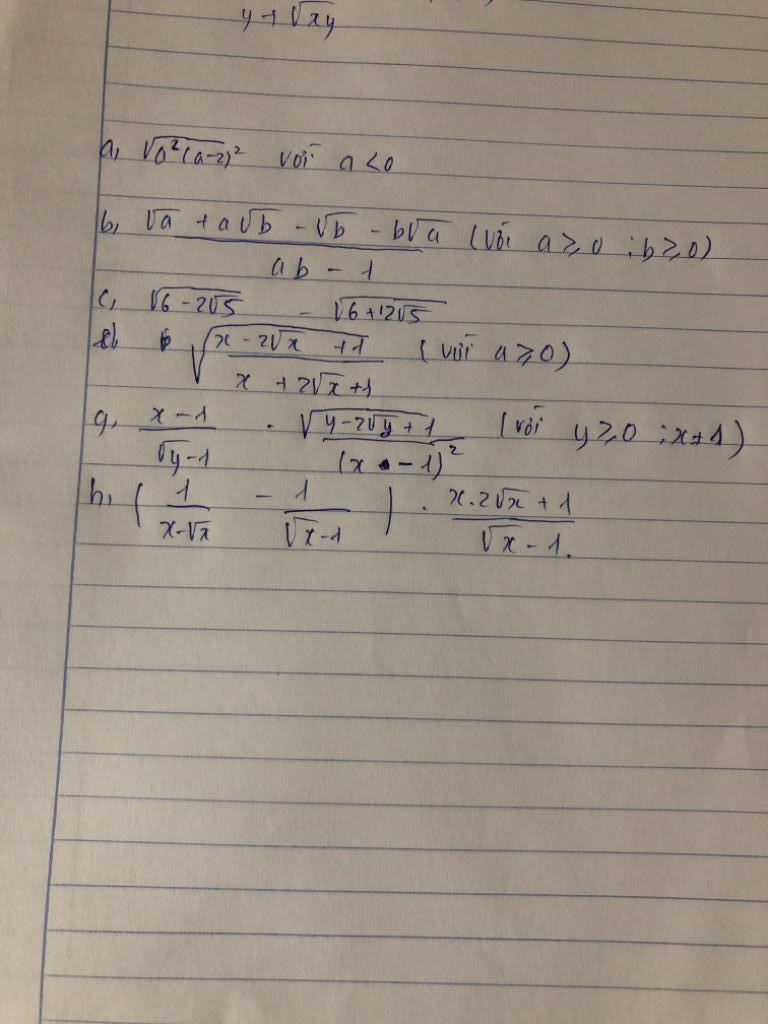 y + √xy
a, √a²(a-2)² với a < 0
b, (√a + a√b - √b - b√a)/(ab - 1) (với a ≥ 0 ; b ≥ 0)
c, √6 - 2√5 - √6 + 2√5
√(x - 2√x + 1)/(x + 2√x + 1) (với a ≥ 0)
g, (x - 1)/(√y - 1) . √(y - 2√y + 1)/(x - 1)² (với y ≥ 0 ; x ≠ 1)
h, (1/(x - √x) - 1/(√x - 1)) . (x . 2√x + 1)/(√x - 1).